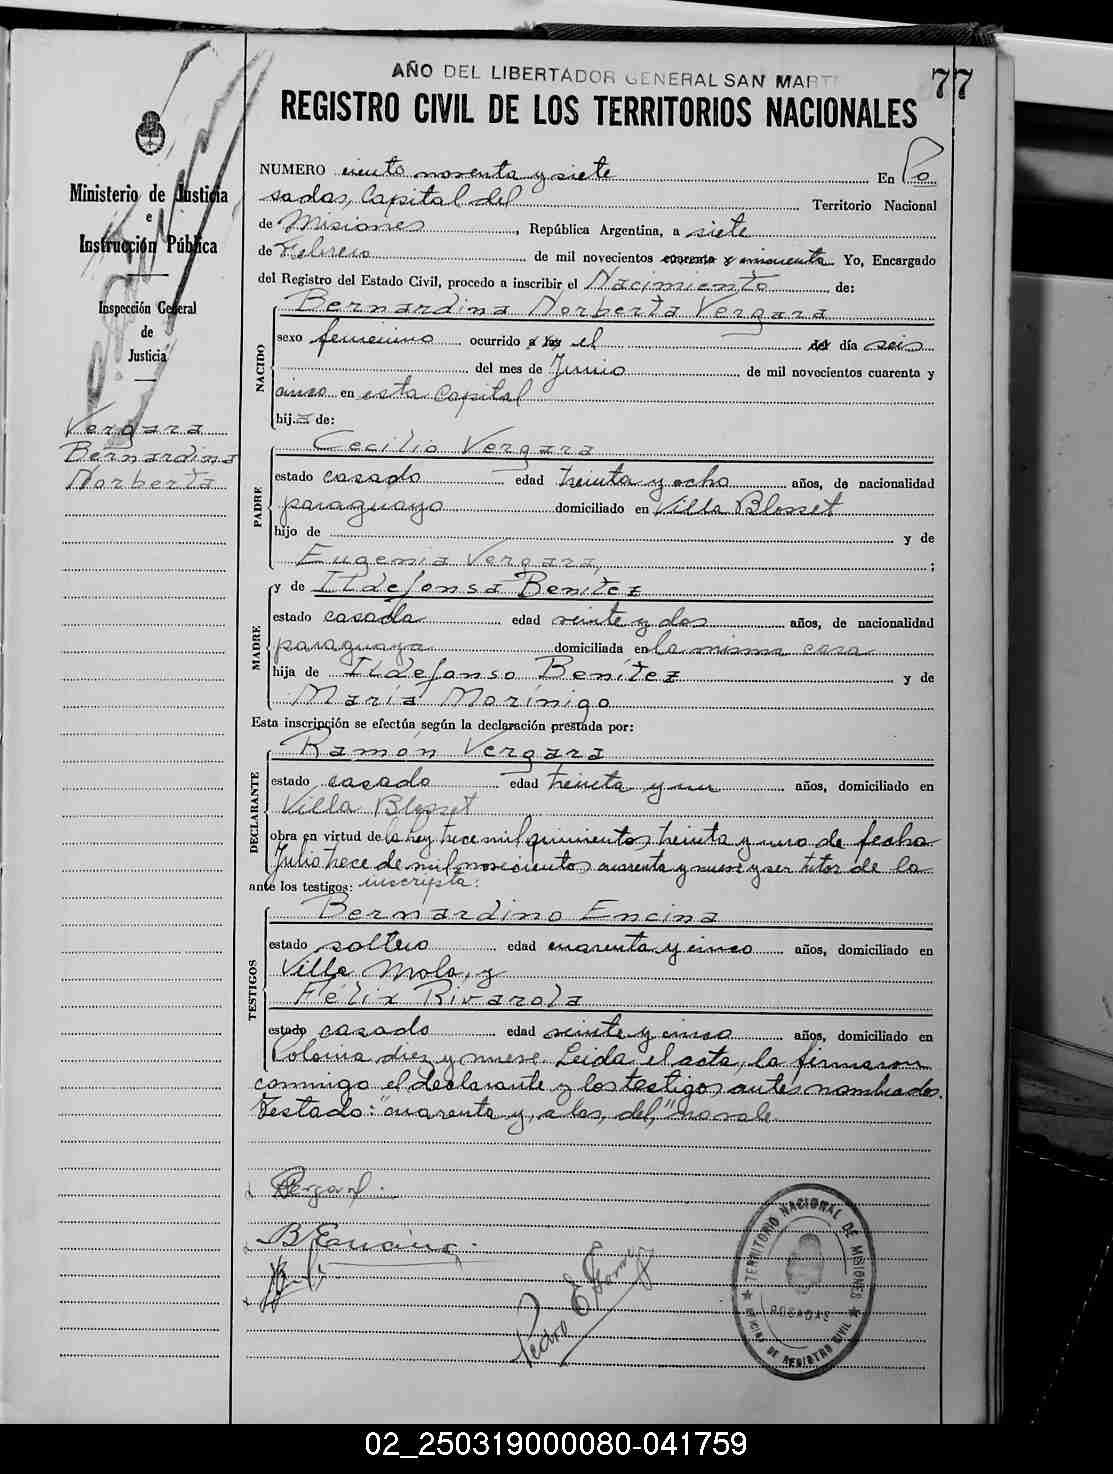 AÑO DEL LIBERTADOR GENERAL SAN MARTI
77
REGISTRO CIVIL DE LOS TERRITORIOS NACIONALES
Ministerio de Justicia
e
Instrucción Pública
Inspección General
de
Justicia
Vergara
Bernardina
Norberta
NUMERO ciento noventa y siete En Po
sadas, Capital del Territorio Nacional
de Misiones, República Argentina, a siete
de Febrero de mil novecientos cuarenta y cincuenta Yo, Encargado
del Registro del Estado Civil, procedo a inscribir el Nacimiento de:
NACIDO
Bernardina Norberta Vergara
sexo femenino ocurrido a las el del día seis
del mes de Junio de mil novecientos cuarenta y
cinco en esta Capital
hija de:
PADRE
Cecilio Vergara
estado casado edad treinta y ocho años, de nacionalidad
paraguayo domiciliado en Villa Blosset
hijo de y de
Eugenia Vergara, ;
MADRE
y de Ildefonsa Benítez
estado casada edad veinte y dos años, de nacionalidad
paraguaya domiciliada en la misma casa
hija de Ildefonso Benítez y de
María Morínigo
Esta inscripción se efectúa según la declaración prestada por:
DECLARANTE
Ramón Vergara
estado casado edad treinta y un años, domiciliado en
Villa Blosset
obra en virtud de la ley trece mil quinientos treinta y uno de fecha
Julio trece de mil novecientos cuarenta y nueve y ser tutor de la
ante los testigos: inscripta:
TESTIGOS
Bernardino Encina
estado soltero edad cuarenta y cinco años, domiciliado en
Villa Mola, y
Félix Rivarola
estado casado edad veinte y cinco años, domiciliado en
Colonia diez y nueve. Leida el acta, la firmaron
conmigo el declarante y los testigos antes nombrados.
Testado: "cuarenta y, a las, del," no vale.
B Encina
Pedro E Gomez
TERRITORIO NACIONAL DE MISIONES
POSADAS
OFICINA DE REGISTRO CIVIL
02_250319000080-041759